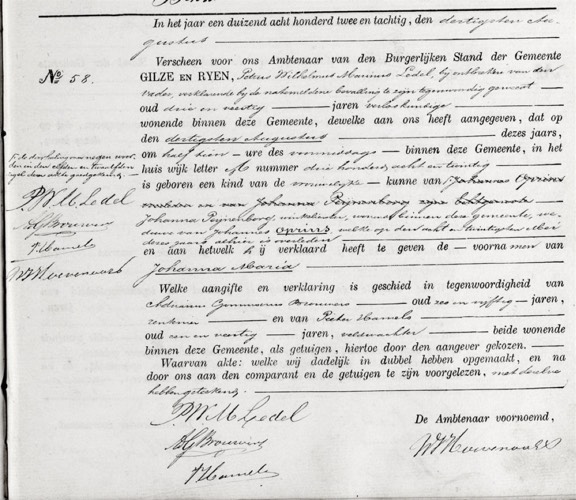 In het jaar een duizend acht honderd twee en tachtig, den dertigsten Au-
gustus
Verscheen voor ons Ambtenaar van den Burgerlijken Stand der Gemeente
GILZE EN RYEN, Petrus Wilhelmus Marinus Ledel, bij ontstentenis van den
vader, verklarende bij de natemeldene bevalling te zijn tegenwoordig geweest
oud drie en veertig jaren verloskundige
wonende binnen deze Gemeente, dewelke aan ons heeft aangegeven, dat op
den dertigsten Augustus dezes jaars,
om half tien ure des voormiddags binnen deze Gemeente, in het
huis wijk letter M numero drie honderd acht en twintig
is geboren een kind van de vrouwelijke kunne van Johannes Oprins
en van Johanna Peijnenborg zijne echtgenote
Johanna Peijnenborg, winkelierster, wonende binnen deze gemeente, we-
duwe van Johannes Oprins welke op den acht en twintigsten Mei
dezes jaars alhier is overleden
en aan hetwelk hij verklaard heeft te geven de voornamen van
Johanna Maria
Welke aangifte en verklaring is geschied in tegenwoordigheid van
Adrianus Brouwers oud zes en vijftig jaren,
rentenier en van Pieter Hamels
oud en veertig jaren, veldwachter beide wonende
binnen deze Gemeente, als getuigen, hiertoe door den aangever gekozen.
Waarvan akte: welke wij dadelijk in dubbel hebben opgemaakt, en na
door ons aan den comparant en de getuigen te zijn voorgelezen, met dezelve
hebben geteekend
P. W. M. Ledel
AG Brouwers
P Hamels
De Ambtenaar voornoemd,
WHoevenaars
No 58.
De doorhaling van negen woor-
den in den elfden en twaalfden
regel dezer akte goedgekeurd
P. W. M. Ledel
AG Brouwers
P Hamels
WHoevenaars